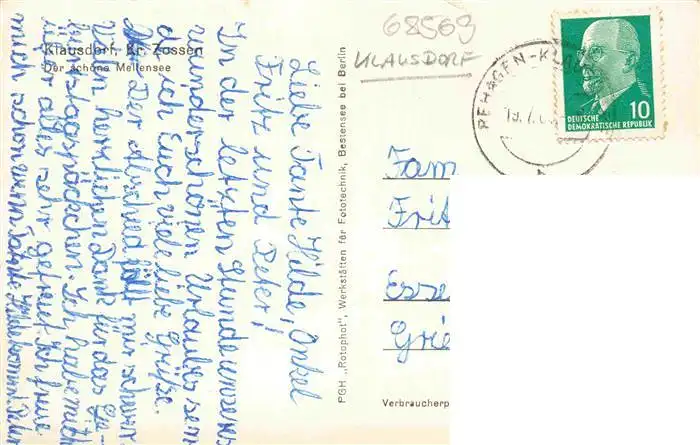 Klausdorf, Kr. Zossen
Der schöne Mellensee
68569
KLAUSDORF
REHAGEN-KLAUSDORF
DEUTSCHE
DEMOKRATISCHE REPUBLIK
10
Liebe Tante Hilde, Onkel
Fritz und Peter!
In der letzten Stunde unseres
wunderschönen Urlaubes sen
de ich Euch viele liebe Grüße.
Der Abschied fällt mir schwer.
herrlichen Dank für das Ge-
burtstagspäckchen. Ich habe mich
über alles sehr gefreut. Ich freue
mich schon
PGH „Rotophot", Werkstätten für Fototechnik, Bestensee bei Berlin
Fam
Frit
Esse
Grie
Verbraucherp